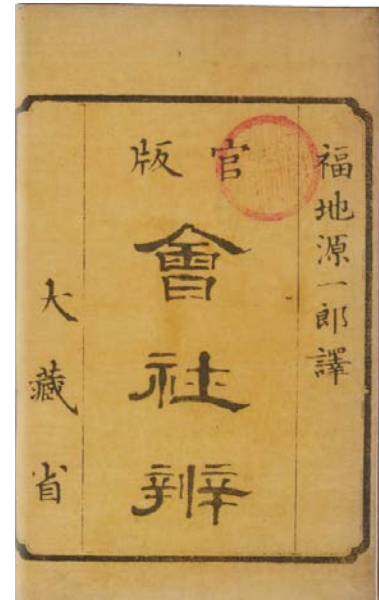 福地源一郎譯
官版
會社辨
大藏省